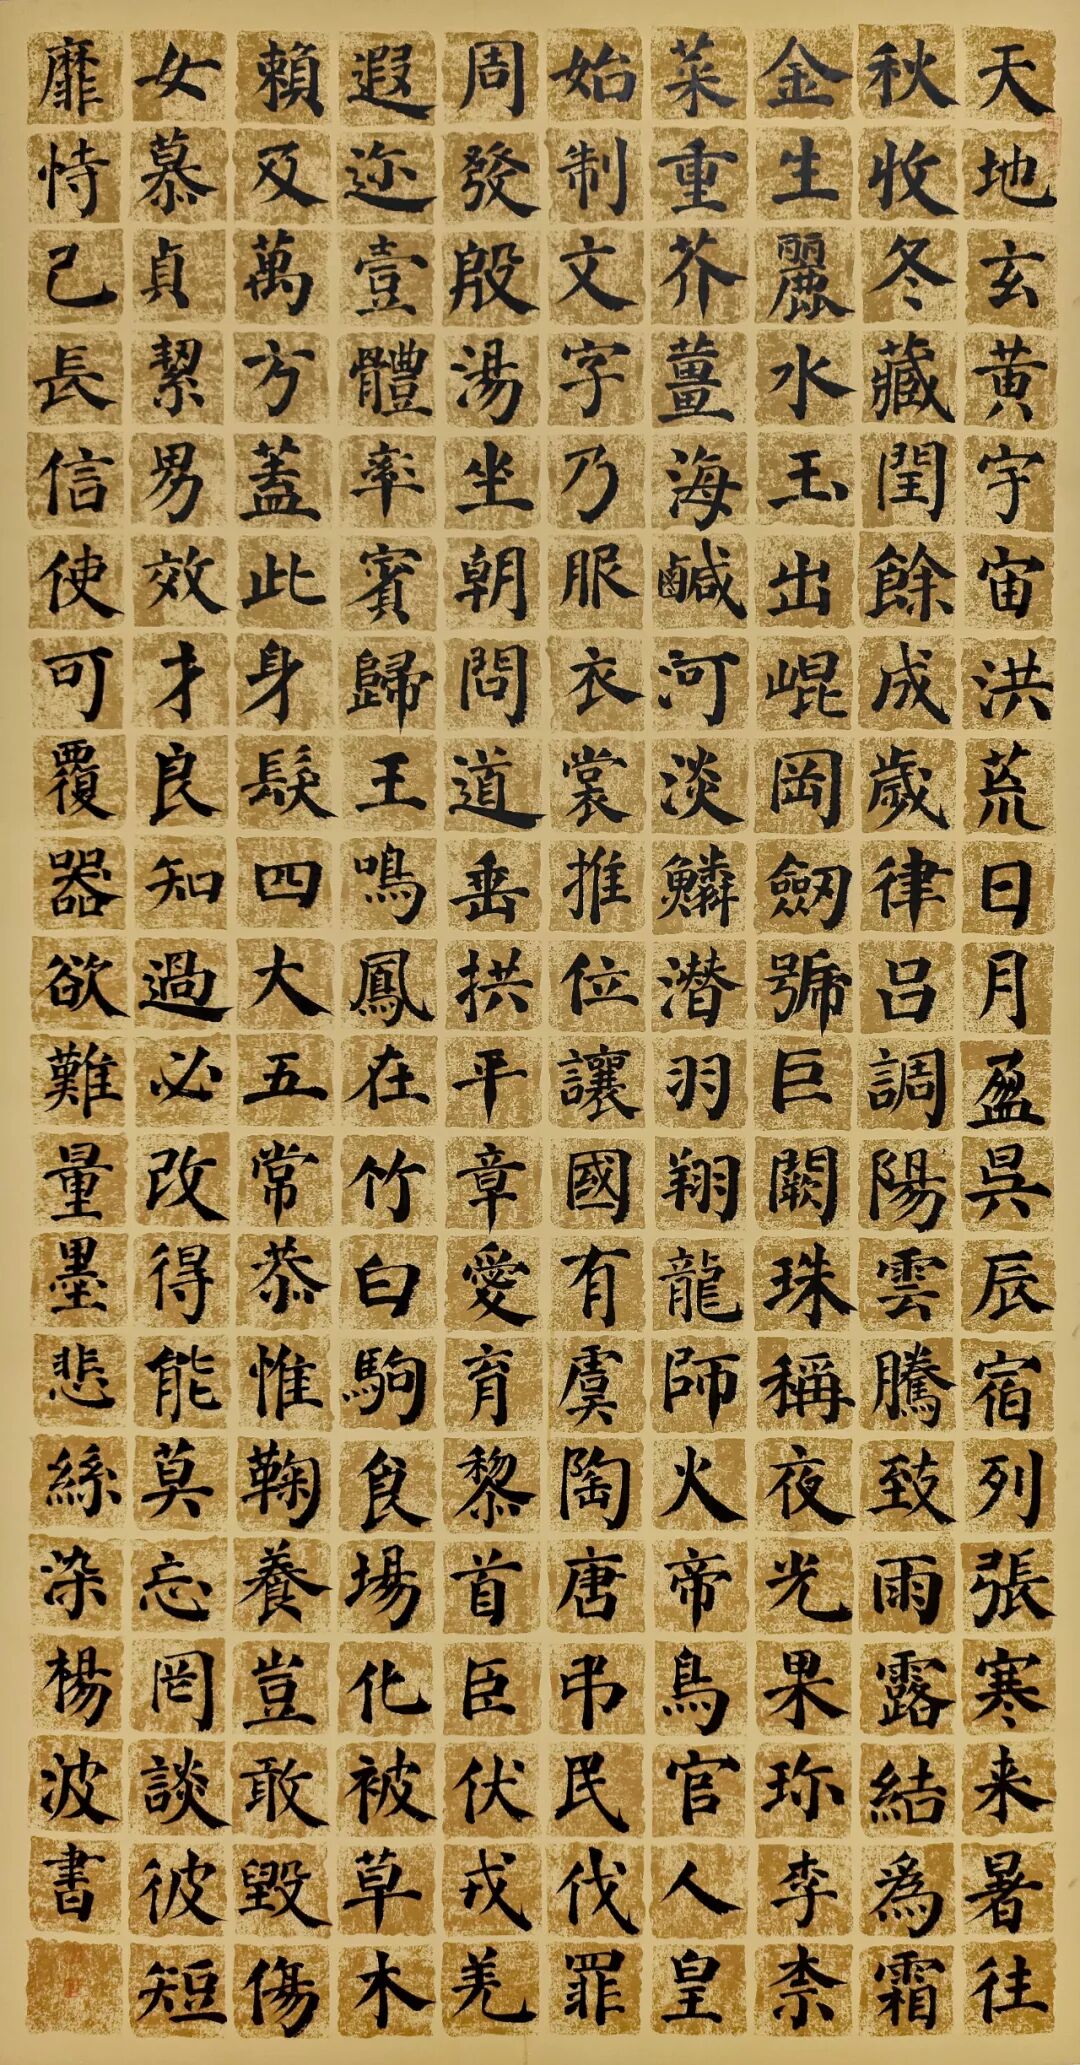 天地玄黃宇宙洪荒日月盈昃辰宿列張寒来暑往
秋收冬藏閏餘成歲律呂調陽雲騰致雨露結為霜
金生麗水玉出崐岡劒號巨闕珠稱夜光果珎李柰
菜重芥薑海鹹河淡鱗潜羽翔龍師火帝鳥官人皇
始制文字乃服衣裳推位讓國有虞陶唐弔民伐罪
周發殷湯坐朝問道垂拱平章愛育黎首臣伏戎羌
遐迩壹體率賓歸王鳴鳳在竹白駒食場化被草木
賴及萬方蓋此身髮四大五常恭惟鞠養豈敢毀傷
女慕貞絜男效才良知過必改得能莫忘罔談彼短
靡恃己長信使可覆器欲難量墨悲絲染楊波書